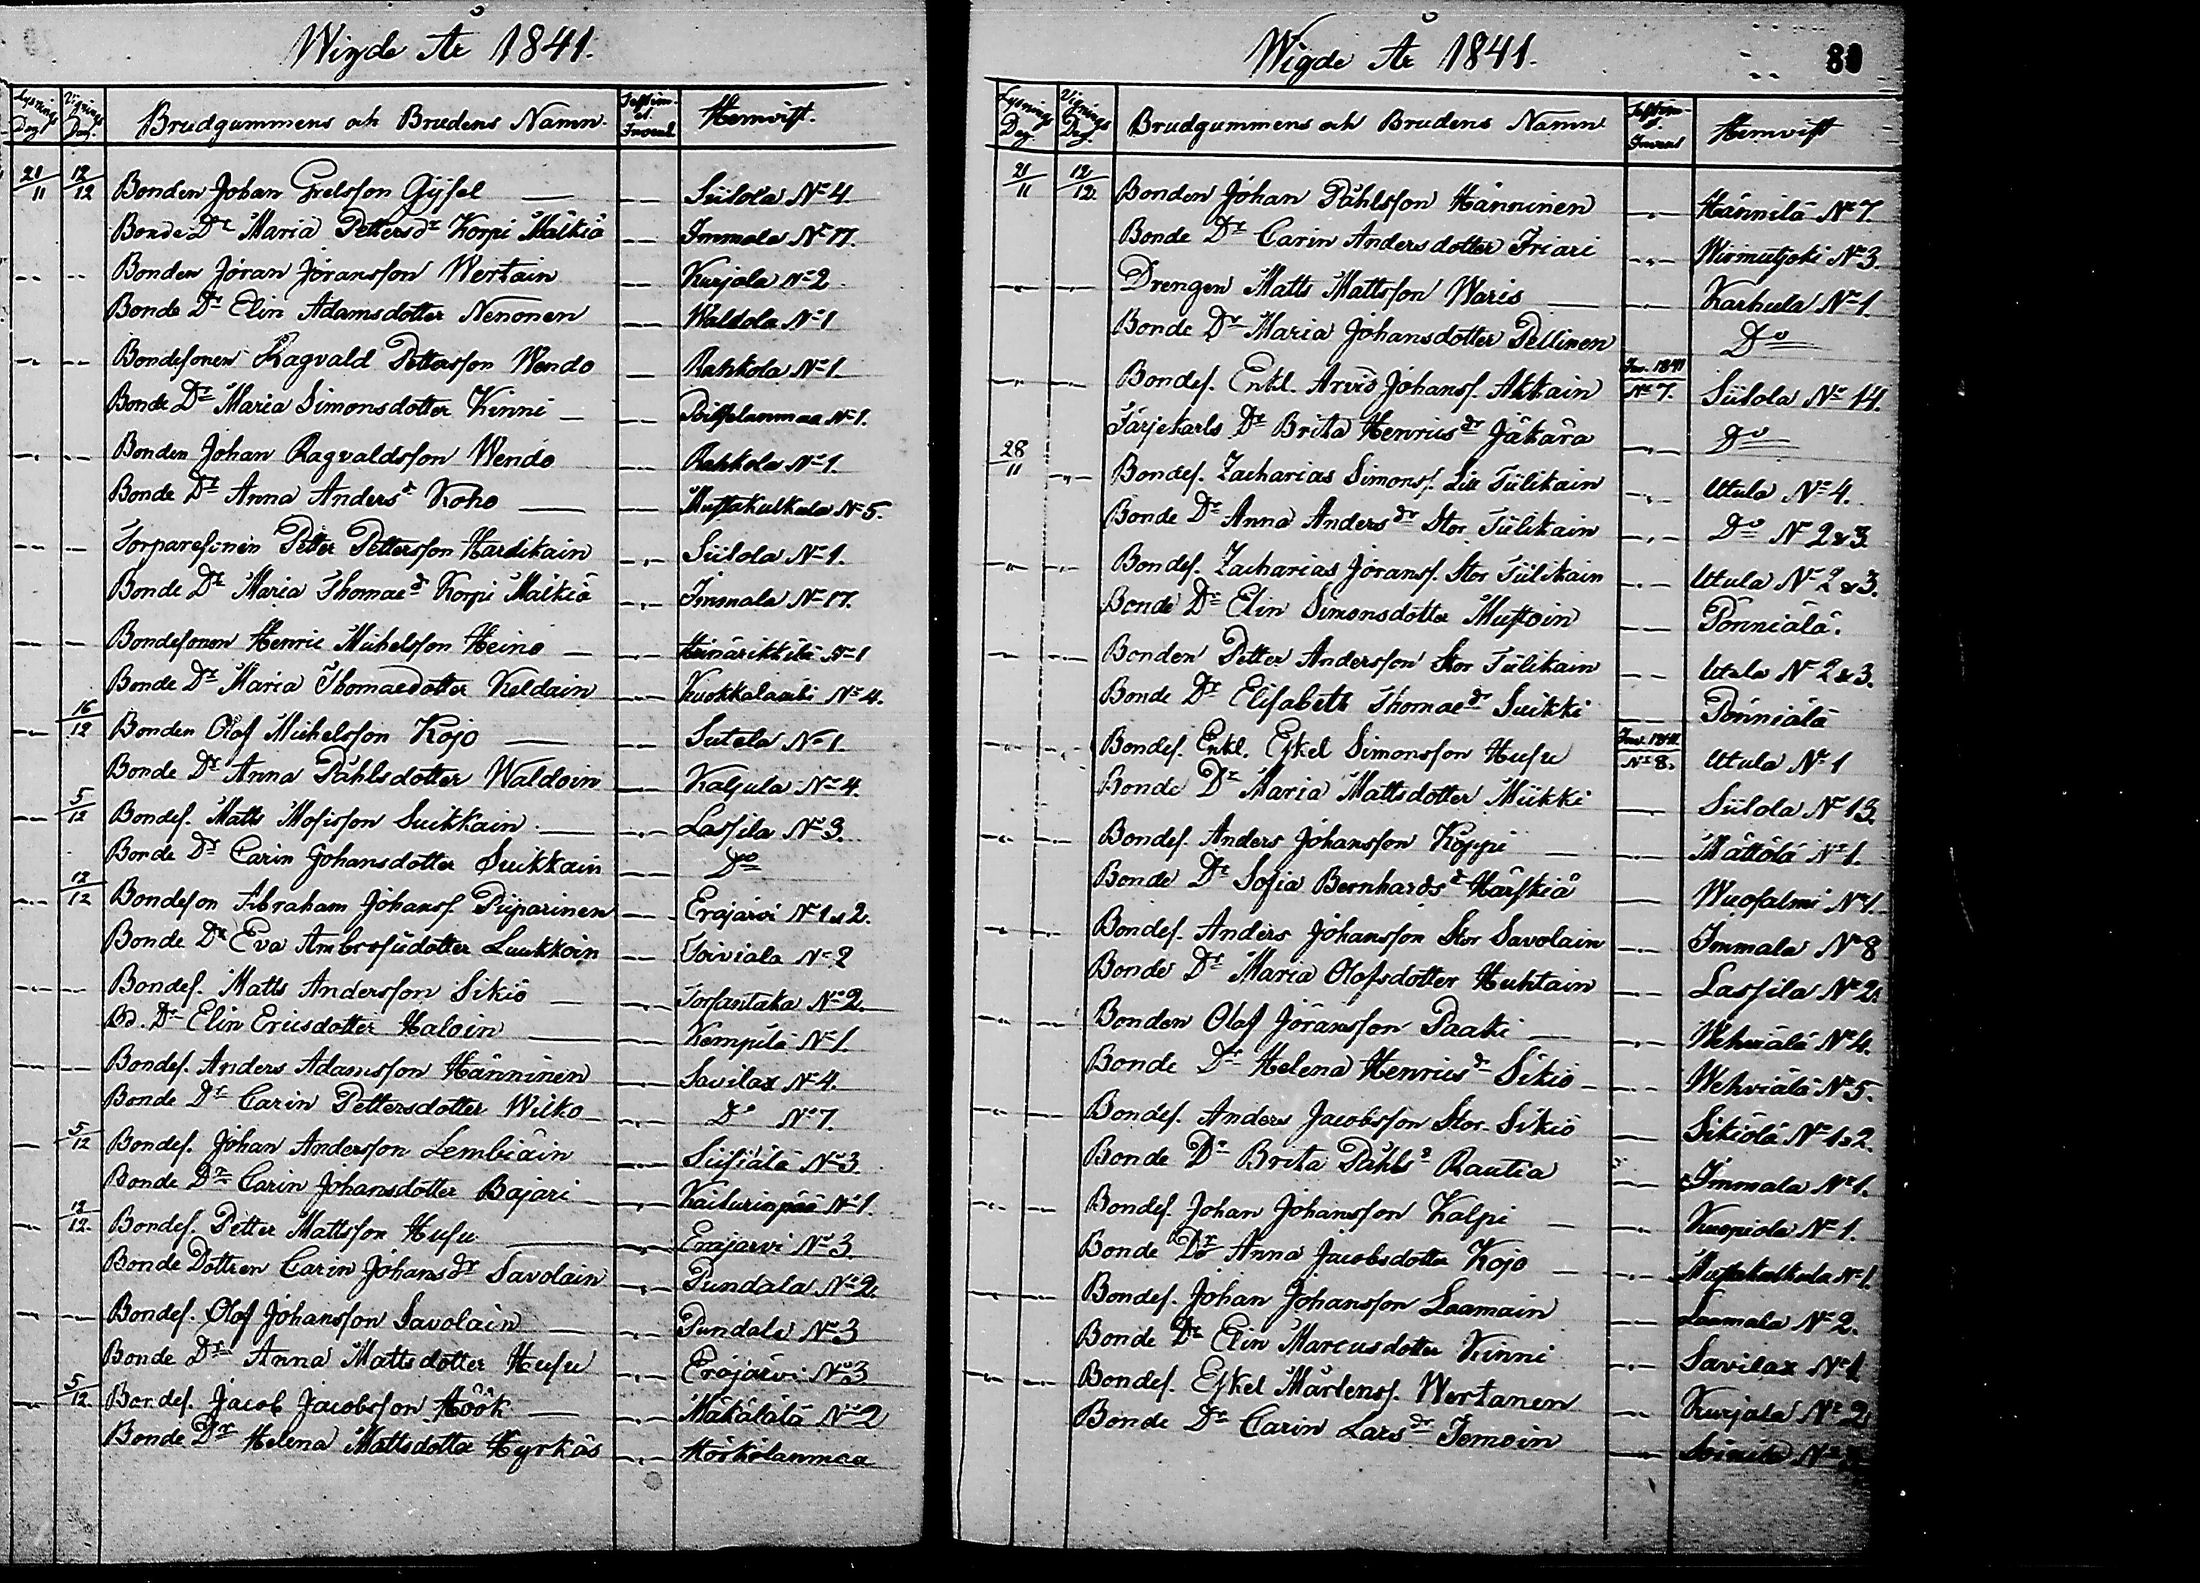 Wigde År 1841.
Lysnings Dag Vignings Dag. Brudgummens och Brudens Namn. Hemvist.
21/11 12/12 Bonden Johan Grelsson Gysel — Siilola No 4.
Bonde Dr Maria Petters dr Korpi Mälkiä — Immala No 17.
Bonden Jöran Jöransson Wertain — Kurjala No 2
Bonde Dr Elin Adamsdotter Nenonen — Waldola No 1
Bondesonen Ragvald Pettersson Wendo — Rahkola No 1
Bonde Dr Maria Simonsdotter Kinni — No 1.
Bonden Johan Ragvaldsson Wendo — Rahkola No 1
Bonde Dr Anna Anders dr Koho — Mustakulkula No 5.
Torparesonen Petter Pettersson Hardikain — Siilola No 1.
Bonde Dr Maria Thomae dr Korpi Mälkiä — Immala No 17.
Bondesonen Henric Michelsson Heino — Heinärikkilä No 1
Bonde Dr Maria Thomaedotter Keldain — Kuokkalambi No 4.
16/12 Bonden Olof Michelsson Kojo — Sutela No 1.
Bonde Dr Anna Påhlsdotter Waldoin — Kaljula No 4.
5/12 Bondes. Matts Mosisson Suikkain — Lassila No 3.
Bonde Dr Carin Johansdotter Suikkain — Do
12/12 Bondeson Abraham Johanss. Piiparinen — Eräjärvi No 1 & 2.
Bonde Dr Eva Ambrosiidotter Luukkoin — Toiviala No 2
Bondes. Matts Andersson Sikiö — Torsantaka No 2.
Bd. Dr Elin Ericsdotter Haloin — Kempilä No 1.
Bondes. Anders Adamsson Hänninen — Savilax No 4.
Bonde Dr Carin Pettersdotter Wilko — Do No 7.
5/12 Bondes. Johan Andersson Lembiäin — Siisiälä No 3.
Bonde Dr Carin Johansdotter Bajari — Kaiturinpää No 1.
12/12. Bondes. Petter Mattsson Husu — Eräjärvi No 3.
Bonde Dottren Carin Johans dr Savolain — Pundala No 2.
Bondes. Olof Johansson Savolain — Pundala No 3
Bonde Dr Anna Mattsdotter Husu — Eräjärvi No 3
5/12. Bondes. Jacob Jacobsson Höök — Mäkälätä No 2
Bonde Dr Helena Mattsdotter Hyrkäs — Härkölanmaa
Wigde År 1841. 80
Lysnings Dag. Vignings Dag. Brudgummens och Brudens Namn Hemvist
21/11 12/12. Bonden Johan Påhlsson Hänninen — Hännilä No 7
Bonde Dr Carin Andersdotter Friari — Wirmutjoki No 3.
Drengen Matts Mattsson Waris — Karhula No 1.
Bonde Dr Maria Johansdotter Pellinen Do
Bondes. Enkl. Arvid Johanss. Akkain Inv. 1841 No 7. Siilola No 14.
Färjekarls Dr Brita Henrics dr Jäkärä — Do
28/11 Bondes. Zacharias Simonss. Lill Tiilikain — Utula No 4.
Bonde Dr Anna Anders dr Stor Tiilikain — Do No 2 & 3.
Bondes. Zacharias Jöranss. Stor Tiilikain — Utula No 2 & 3.
Bonde Dr Elin Simonsdotter Mustoin — Pönniälä.
Bonden Petter Andersson Stor Tiilikain — Utula No 2 & 3.
Bonde Dr Elisabeth Thomae dr Suikki — Pönniälä
Bondes. Enkl. Eskel Simonsson Husu Inv. 1841. No 8. Utula No 1
Bonde Dr Maria Mattsdotter Miikki — Siilola No 13.
Bondes. Anders Johansson Koppi — Mättölä No 1.
Bonde Dr Sofia Bernhards dr Härskiä — Wuosalmi No 1.
Bondes. Anders Johansson Stor Savolain — Immala No 8
Bonde Dr Maria Olofsdotter Huhtain — Lassila No 2.
Bonden Olof Jöransson Paaki — Wehviälä No 4.
Bonde Dr Helena Henrics dr Sikiö — Wehviälä No 5.
Bondes. Anders Jacobsson Stor-Sikiö — Sikiölä No 1 & 2.
Bonde Dr Brita Påhls dr Rautia — Immala No 1.
Bondes. Johan Johansson Kalpi — Kuopiola No 1.
Bonde Dr Anna Jacobsdotter Kojo — Mustakulkula No 1
Bondes. Johan Johansson Laamain — Laamala No 2.
Bonde Dr Elin Marcusdotter Kinni — Savilax No 1
Bondes. Eskel Mårtenss. Wertanen — Kurjala No 2
Bonde Dr Carin Lars dr Tomoin —